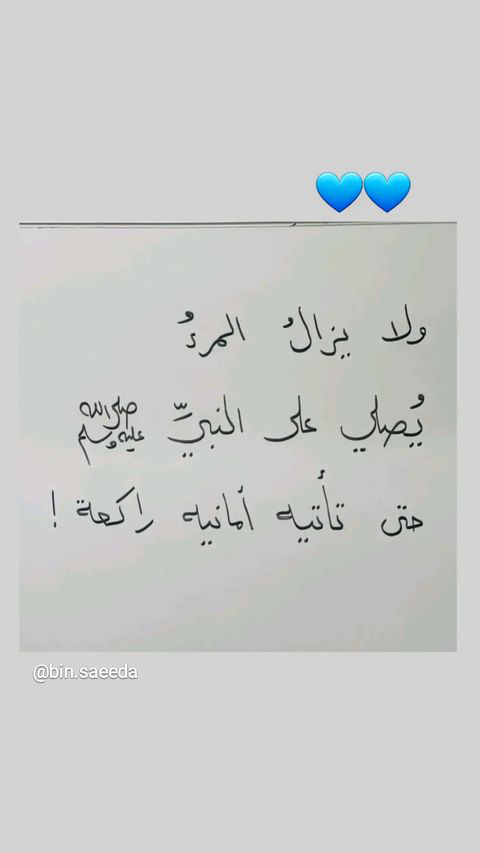 💙💙
ولا يزالُ المرءُ
يُصلي على النبيِّ ﷺ
حتى تأتيه أمانيه راكعة !
@bin.saeeda